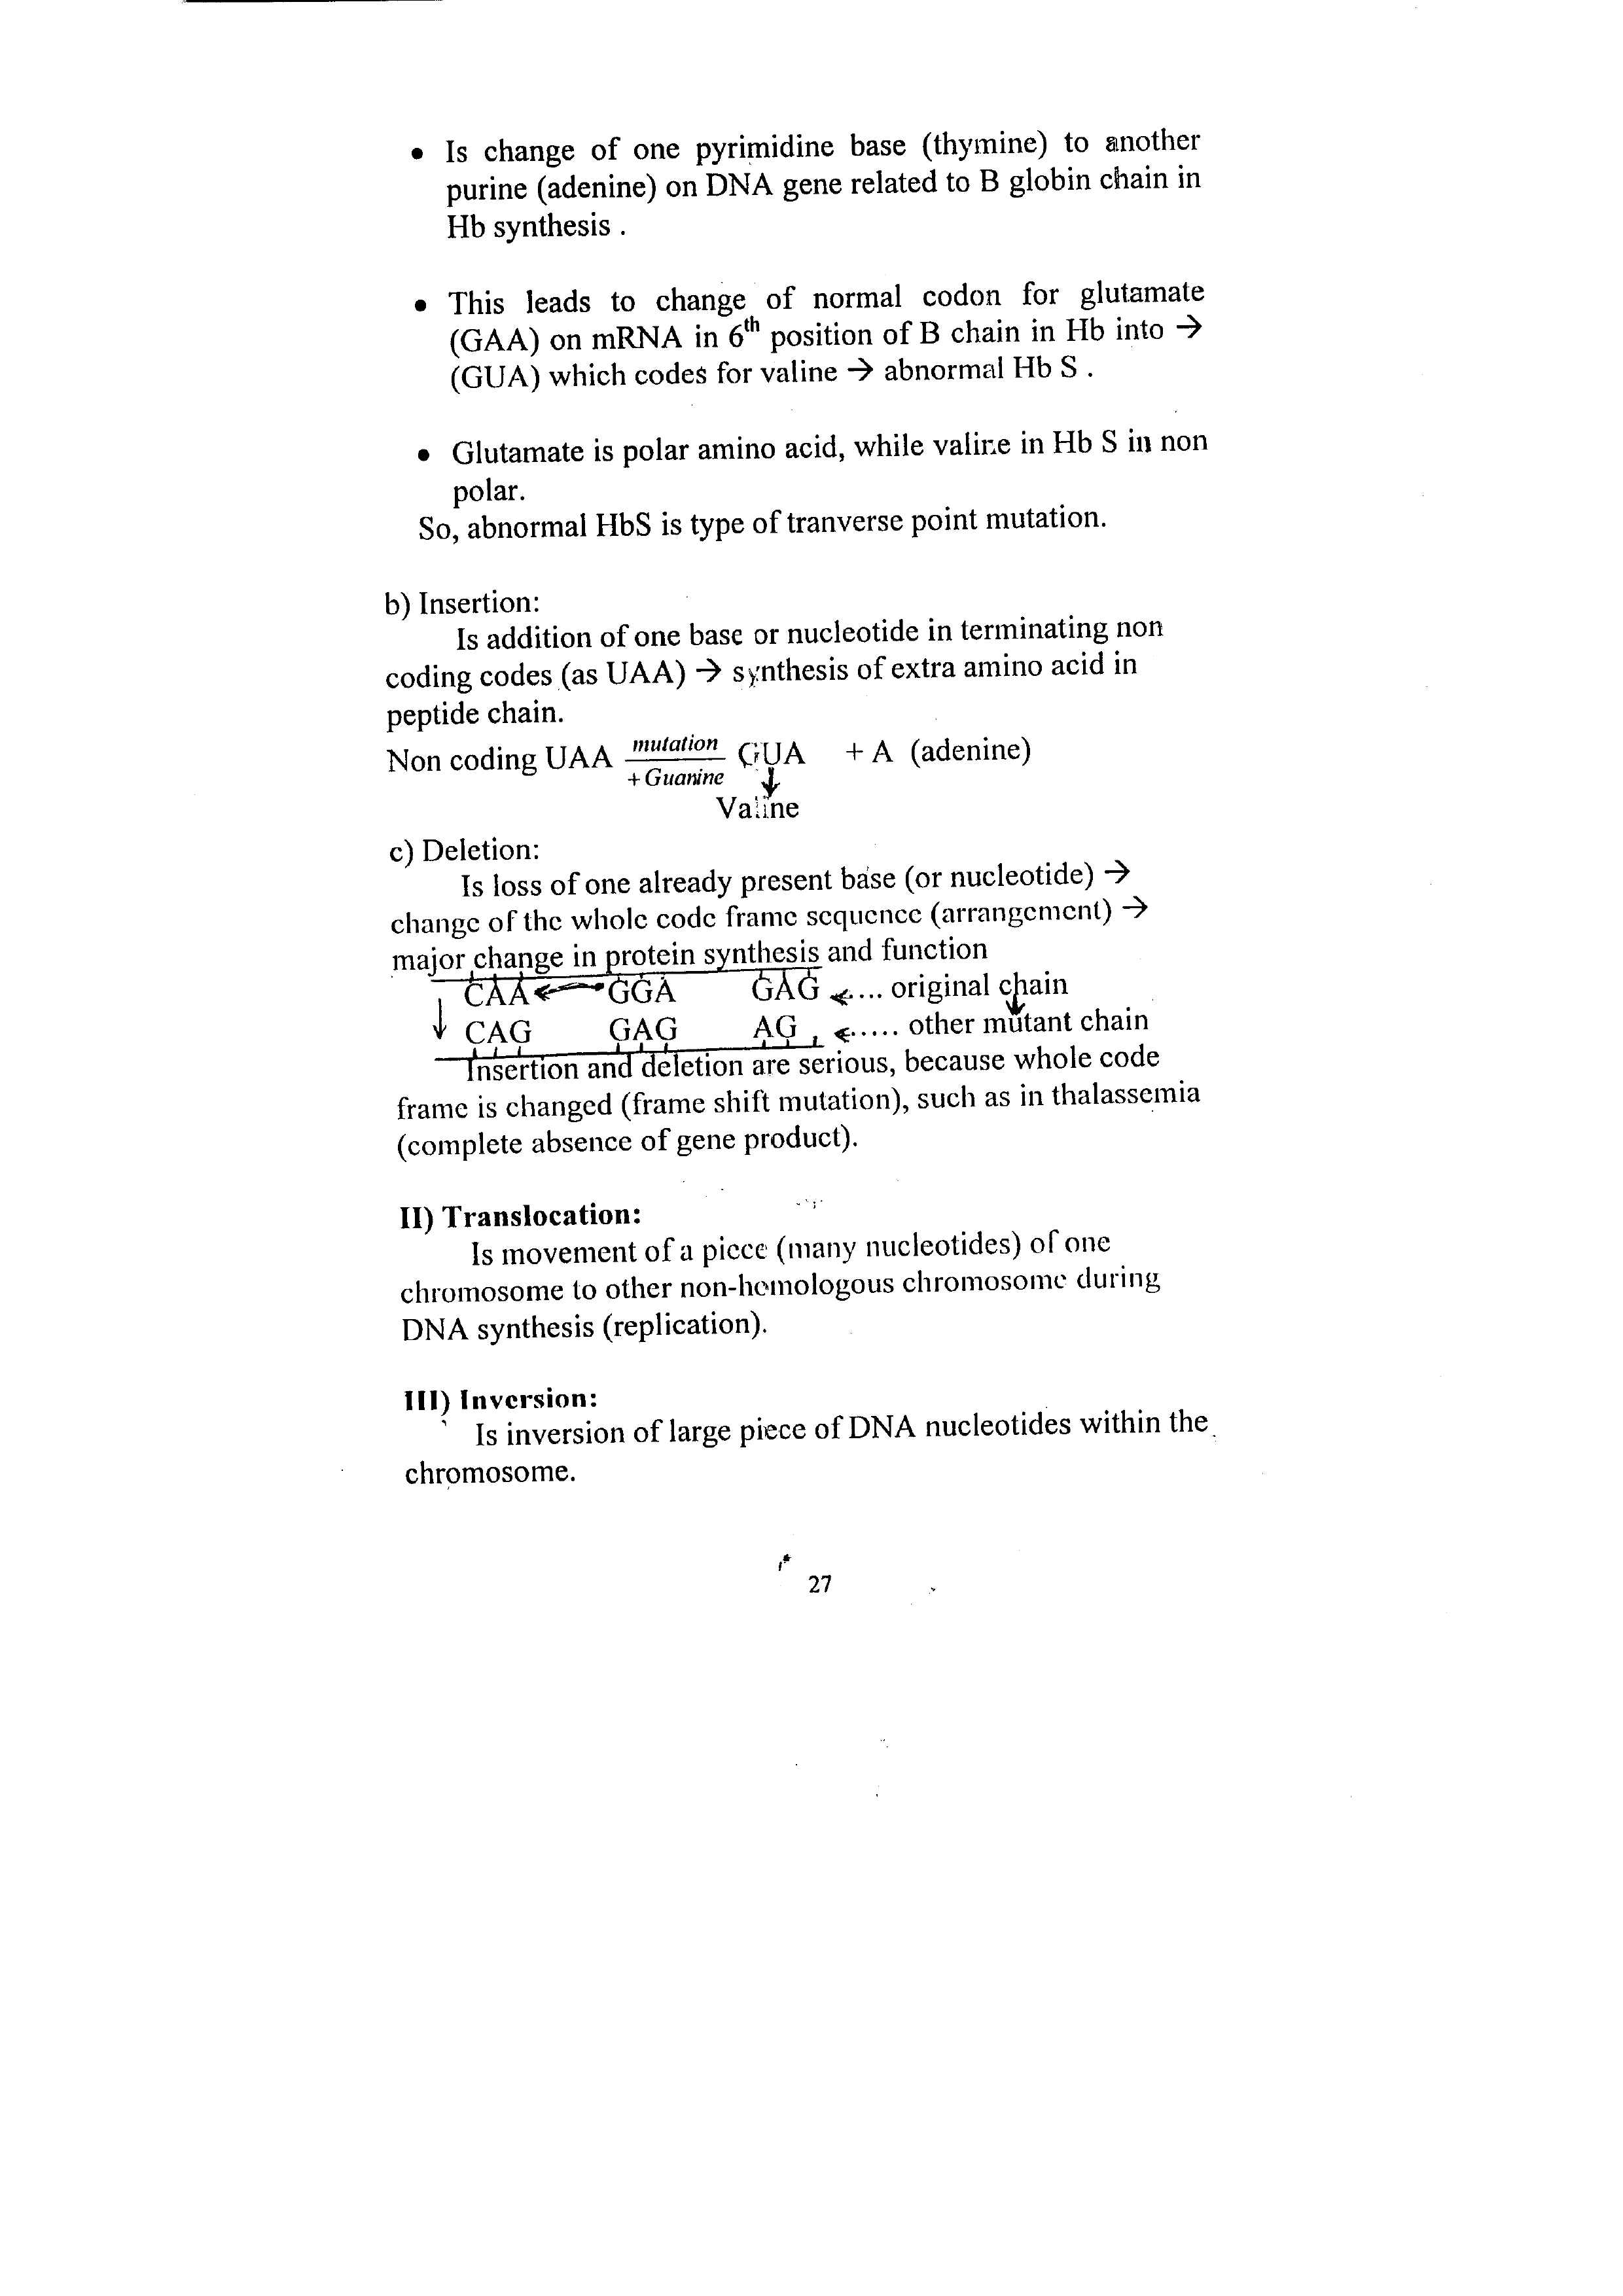 • Is change of one pyrimidine base (thymine) to another
purine (adenine) on DNA gene related to B globin chain in
Hb synthesis .
• This leads to change of normal codon for glutamate
(GAA) on mRNA in 6th position of B chain in Hb into →
(GUA) which codes for valine → abnormal Hb S .
• Glutamate is polar amino acid, while valine in Hb S in non
polar.
So, abnormal HbS is type of tranverse point mutation.
b) Insertion:
Is addition of one base or nucleotide in terminating non
coding codes (as UAA) → synthesis of extra amino acid in
peptide chain.
Non coding UAA mutation GUA + A (adenine)
+Guanine ↓
Valine
c) Deletion:
Is loss of one already present base (or nucleotide) →
change of the whole code frame sequence (arrangement) →
major change in protein synthesis and function
CAA GGA GAG ... original chain
CAG GAG AG ..... other mutant chain
Insertion and deletion are serious, because whole code
frame is changed (frame shift mutation), such as in thalassemia
(complete absence of gene product).
II) Translocation:
Is movement of a piece (many nucleotides) of one
chromosome to other non-homologous chromosome during
DNA synthesis (replication).
III) Inversion:
Is inversion of large piece of DNA nucleotides within the
chromosome.
27